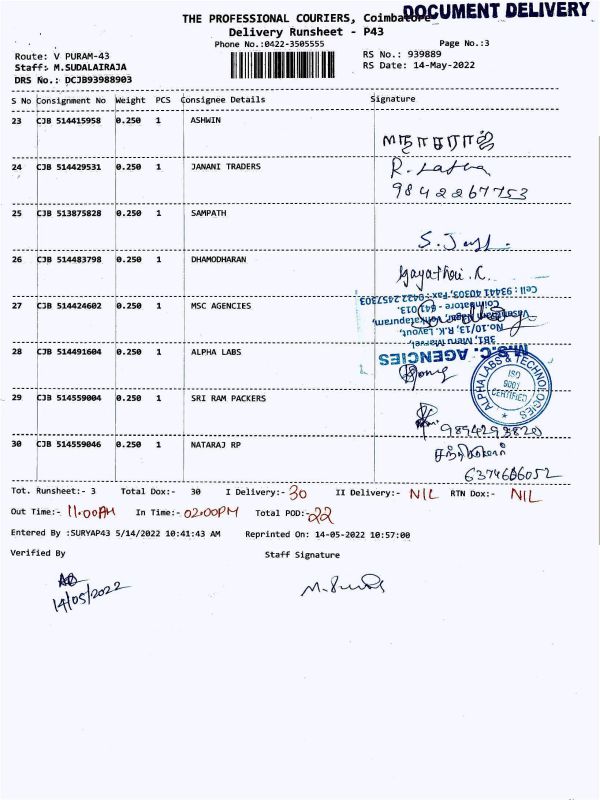 DOCUMENT DELIVERY
THE PROFESSIONAL COURIERS, Coimbatore
Delivery Runsheet - P43
Phone No.:0422-3505555
Page No.:3
Route: V PURAM-43
RS No.: 939889
Staff: M.SUDALAIRAJA
RS Date: 14-May-2022
DRS No.: DCJB93988903
S No Consignment No Weight PCS Consignee Details Signature
23 CJB 514415958 0.250 1 ASHWIN
24 CJB 514429531 0.250 1 JANANI TRADERS
R. Latha
9842267753
25 CJB 513875828 0.250 1 SAMPATH
26 CJB 514483798 0.250 1 DHAMODHARAN
Gayathri.R.
27 CJB 514424602 0.250 1 MSC AGENCIES
M.S.C. AGENCIES
3B1, Meru Marvel,
No.10/13, R.K. Layout,
Venkatapuram,
Coimbatore - 641 013.
Cell : 93441 40303, Fax : 0422 2457303
28 CJB 514491604 0.250 1 ALPHA LABS
ALPHA LABS & TECHNOLOGIES
ISO
9001
CERTIFIED
29 CJB 514559004 0.250 1 SRI RAM PACKERS
9894293820
30 CJB 514559046 0.250 1 NATARAJ RP
6374686052
Tot. Runsheet:- 3 Total Dox:- 30 I Delivery:- 30 II Delivery:- NIL RTN Dox:- NIL
Out Time:- 11.00AM In Time:- 02:00PM Total POD:- 22
Entered By :SURYAP43 5/14/2022 10:41:43 AM Reprinted On: 14-05-2022 10:57:00
Verified By Staff Signature
14/05/2022